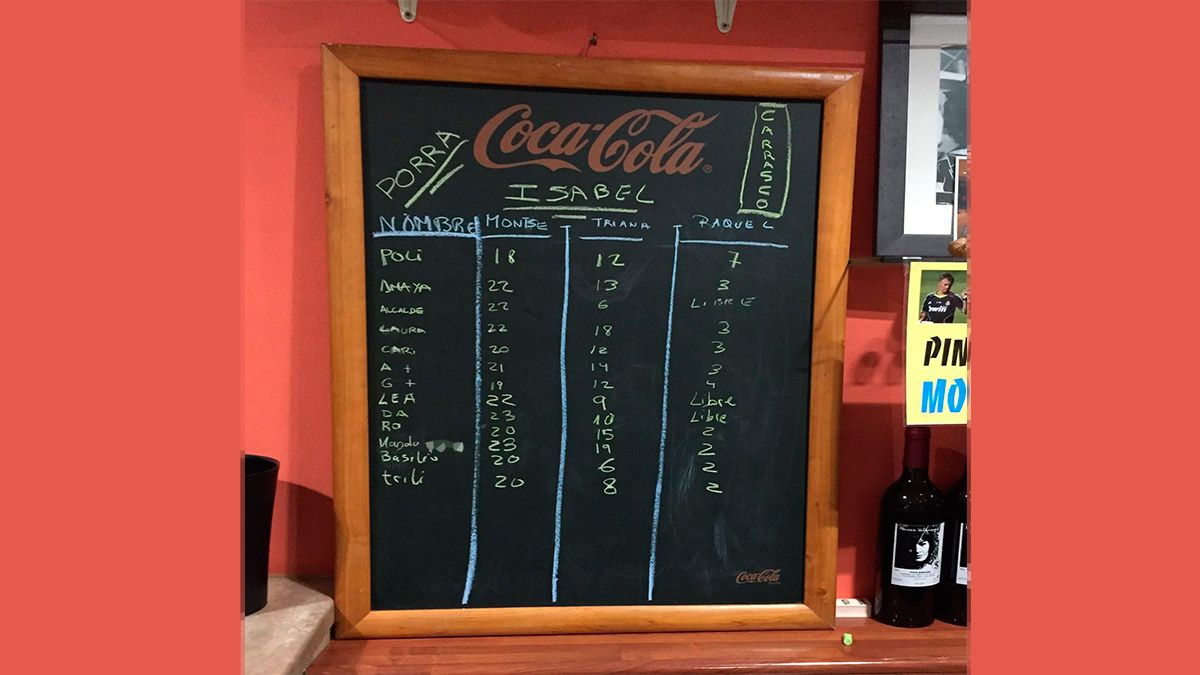 Coca-Cola
PORRA
CARRASCO
ISABEL
NOMBRE MONTSE TRIANA RAQUEL
POLI 18 12 7
AMAYA 22 13 3
ALCALDE 22 6 LIBRE
LAURA 22 18 3
CARI 20 12 3
A + 21 14 3
G + 19 12 4
LEA 22 9 Libre
DA 23 10 Libre
RO 20 15 2
Nando 23 19 2
Basilio 20 6 2
trili 20 8 2
Coca-Cola
bwin
PIN
MO